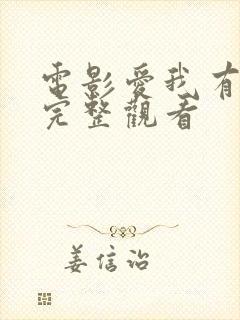 電影愛我有
完整觀看
姜信治